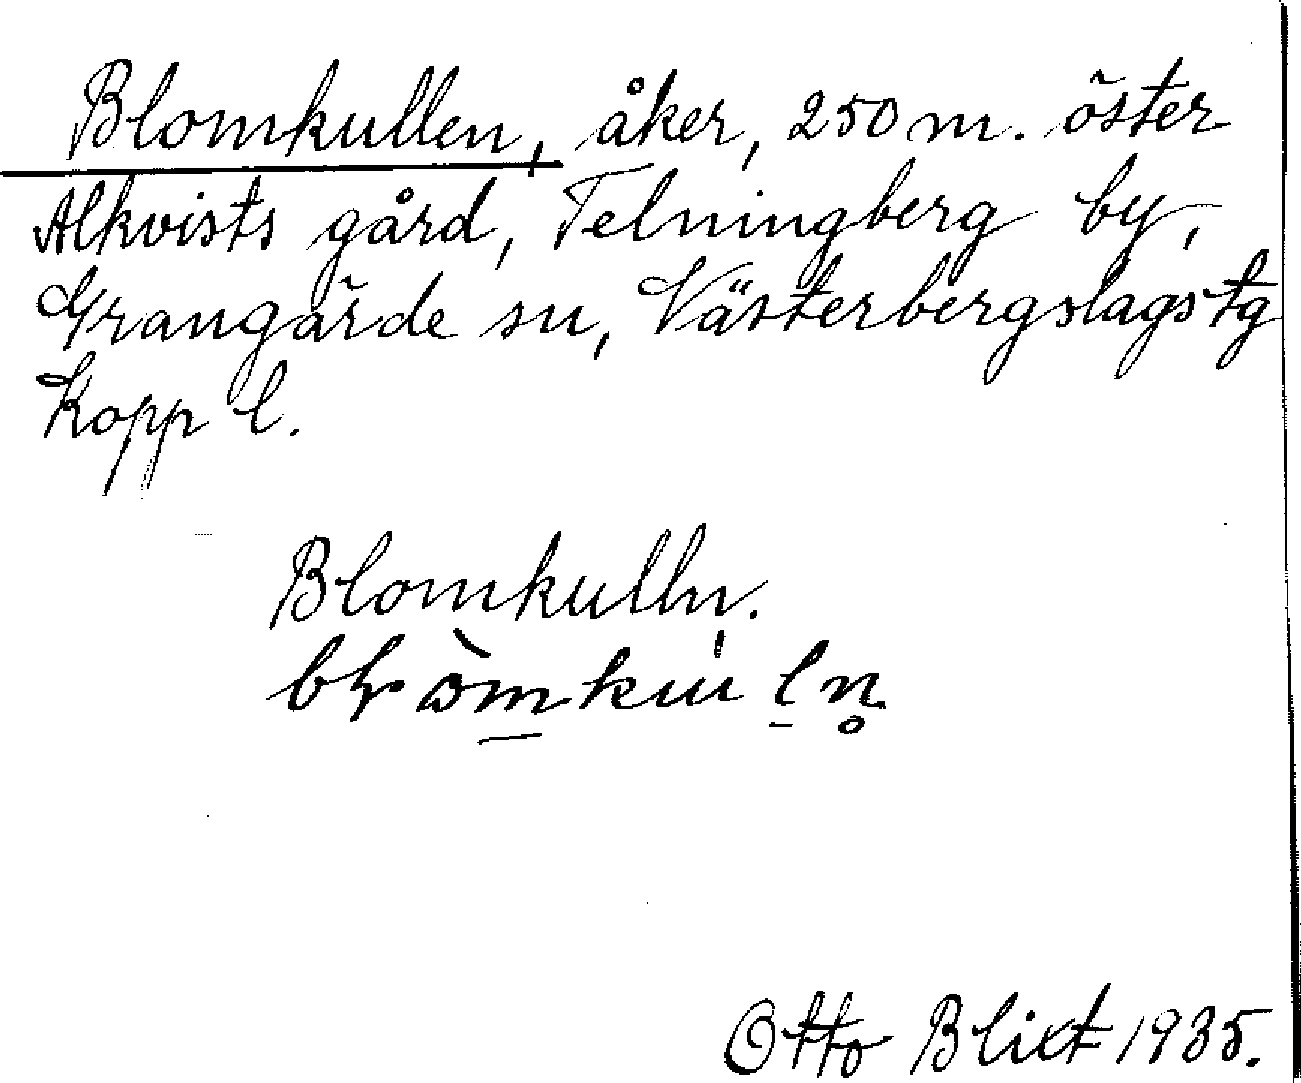 Blomkullen, åker, 250 m. öster
Alkvists gård, Telningberg by,
Grangärde sn, Västerbergslags tg
Kopp l.
Blomkulln.
Otto Blixt 1935.